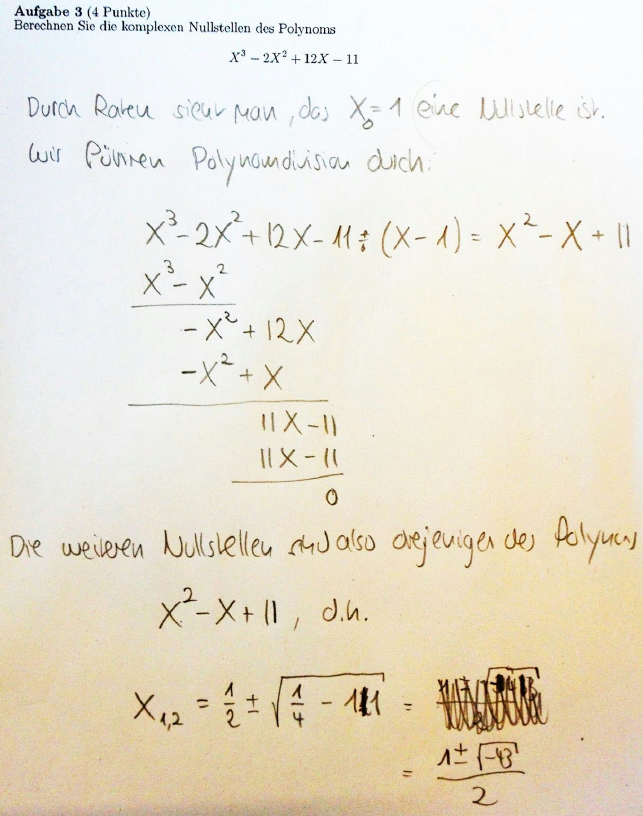 Aufgabe 3 (4 Punkte)
Berechnen Sie die komplexen Nullstellen des Polynoms
X³ − 2X² + 12X − 11
Durch Raten sieht man, das X₀ = 1 eine Nullstelle ist.
Wir führen Polynomdivision durch:
X³ - 2X² + 12X - 11 : (X - 1) = X² - X + 11
X³ - X²
-X² + 12X
-X² + X
11X - 11
11X - 11
0
Die weiteren Nullstellen sind also diejenigen des Polynoms
X² - X + 11, d.h.
X₁,₂ = 1/2 ± √(1/4 - 11) =
= (1 ± √-43)/2